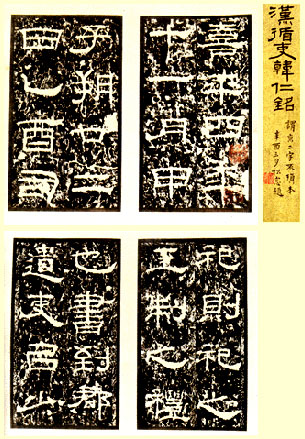 漢循吏韓仁銘
二字未損本
熹平四年
十一月甲
子朔廿二
日乙酉司
祀則祀之
王制之禮
也書到郡
遣吏以少